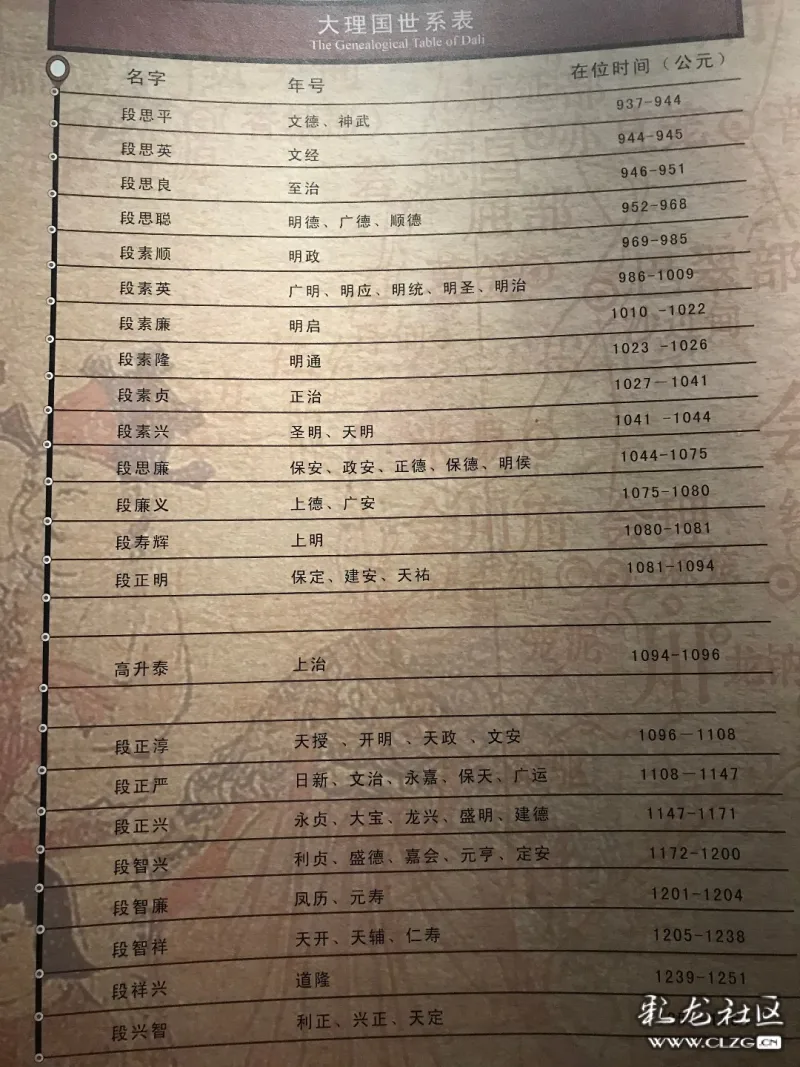 大理国世系表
The Genealogical Table of Dali
名字 年号 在位时间（公元）
段思平 文德、神武 937-944
段思英 文经 944-945
段思良 至治 946-951
段思聪 明德、广德、顺德 952-968
段素顺 明政 969-985
段素英 广明、明应、明统、明圣、明治 986-1009
段素廉 明启 1010 -1022
段素隆 明通 1023 -1026
段素贞 正治 1027-1041
段素兴 圣明、天明 1041 -1044
段思廉 保安、政安、正德、保德、明侯 1044-1075
段廉义 上德、广安 1075-1080
段寿辉 上明 1080-1081
段正明 保定、建安、天祐 1081-1094
高升泰 上治 1094-1096
段正淳 天授 、开明 、天政 、文安 1096－1108
段正严 日新、文治、永嘉、保天、广运 1108－1147
段正兴 永贞、大宝、龙兴、盛明、建德 1147-1171
段智兴 利贞、盛德、嘉会、元亨、定安 1172-1200
段智廉 凤历、元寿 1201-1204
段智祥 天开、天辅、仁寿 1205-1238
段祥兴 道隆 1239-1251
段兴智 利正、兴正、天定
彩龙社区
WWW.CLZG.CN